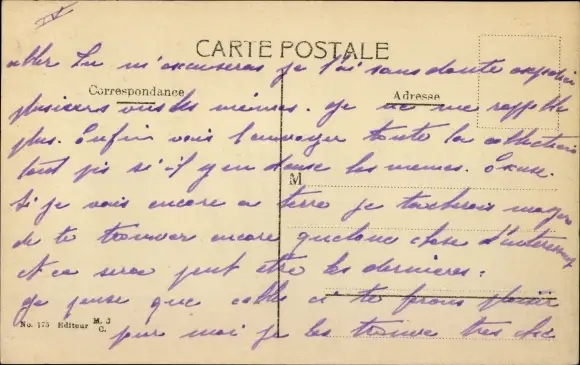 IV
CARTE POSTALE
Correspondance
Adresse
M
tu m'excuseras je t'ai sans doute
plusieurs les mêmes. je ne me rappelle
plus. Enfin vais t'envoyer toute la collection
tant pis si il y en a les memes. Excuse.
Si je vais encore a terre je tacherai
de te trouver encore quelque chose d'interessant
et ce sera peut etre les dernieres.
Je pense que celles ci te ferons plaisir
pour moi je les trouve tres
No. 175 Editeur M. J C.